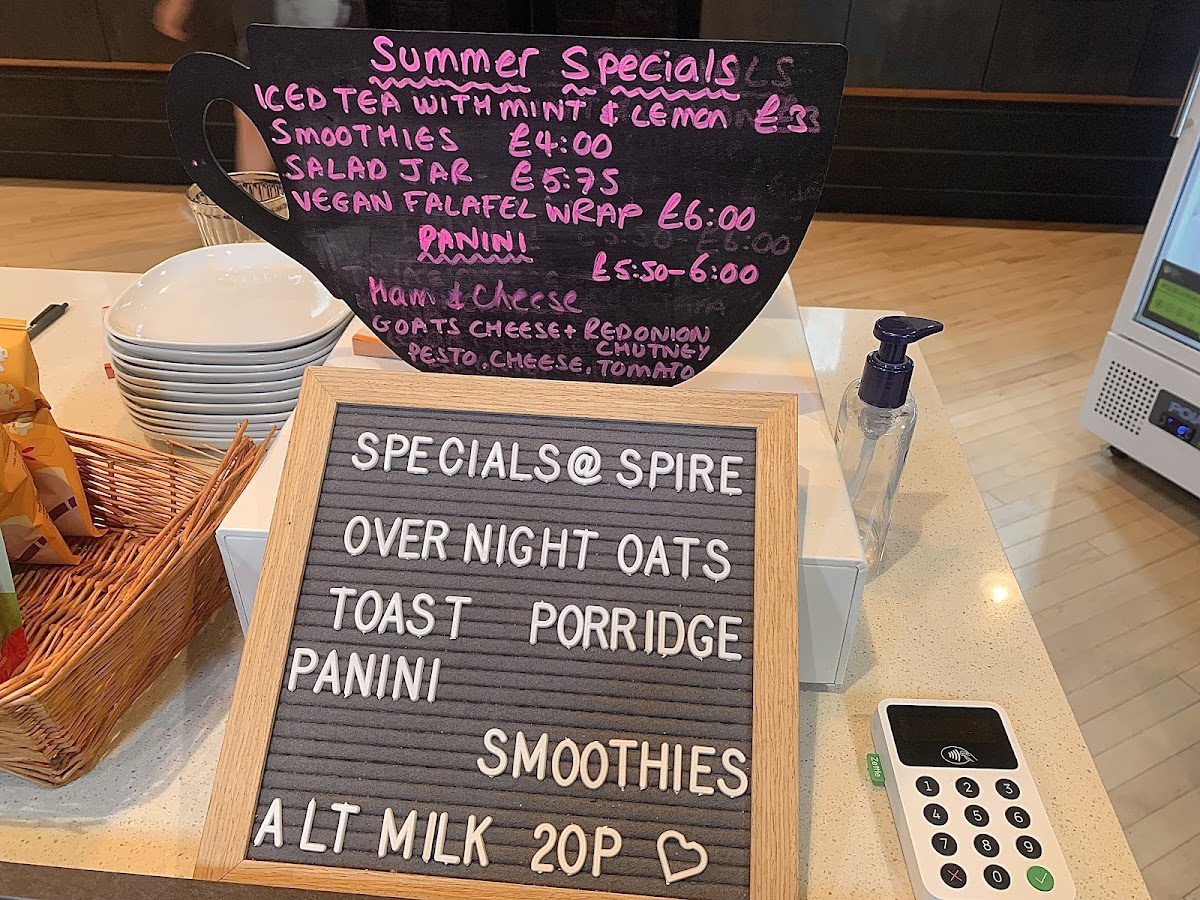 Summer Specials
ICED TEA WITH MINT & LEMON £3
SMOOTHIES £4:00
SALAD JAR £5:75
VEGAN FALAFEL WRAP £6:00
PANINI
£5:50-6:00
Ham & Cheese
GOATS CHEESE + RED ONION
CHUTNEY
PESTO, CHEESE, TOMATO
SPECIALS@SPIRE
OVER NIGHT OATS
TOAST PORRIDGE
PANINI
SMOOTHIES
ALT MILK 20P
Zettle
1 2 3
4 5 6
7 8 9
0